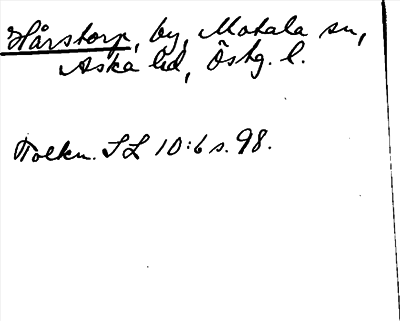 Hårstorp, by, Motala sn,
Aska hd, Östg. l.
Tolkn. SL 10:6 s. 98.